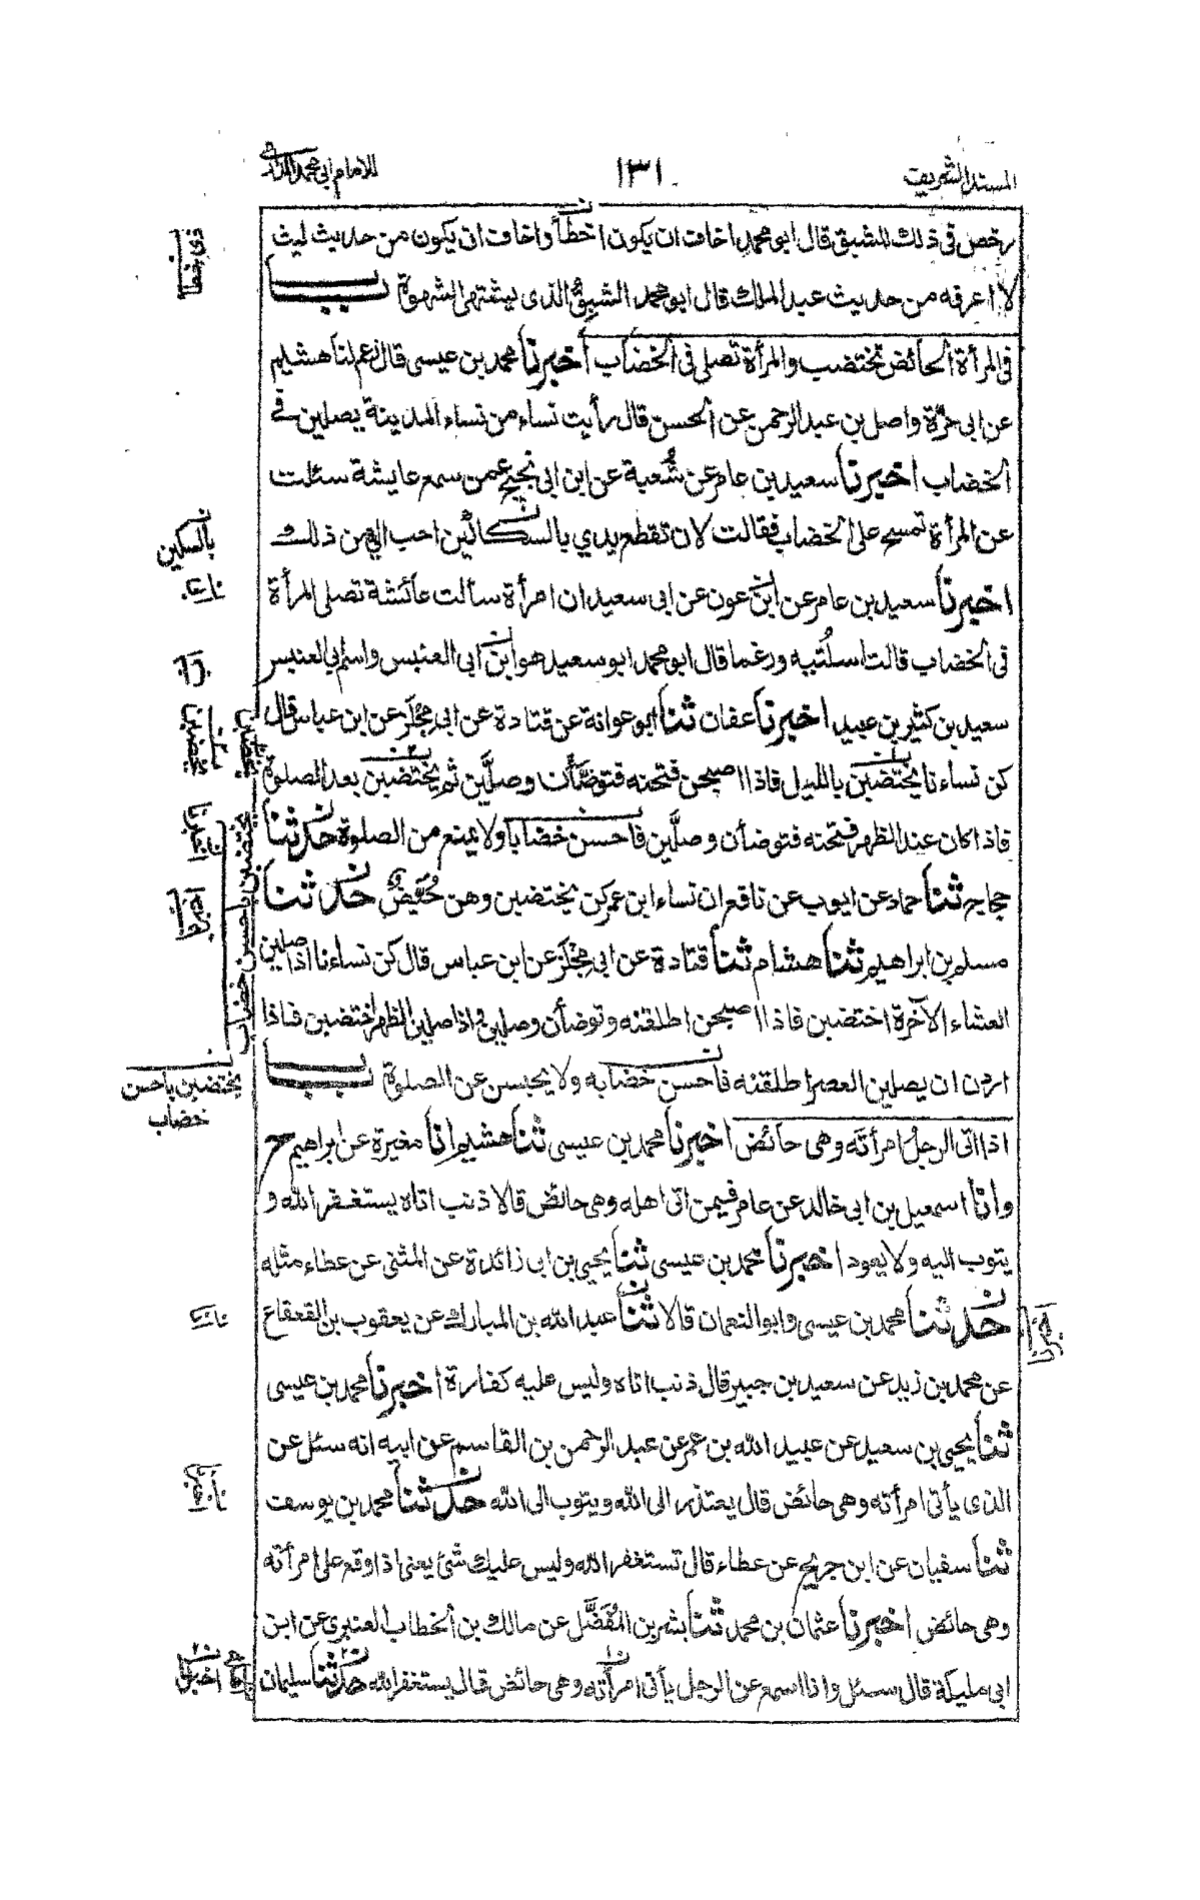 المسند الشريف
١٣١
للامام ابى محمد الدارمى
رخص فى ذلك للشبق قال ابو محمد اخاف ان يكون اخطأ واخاف ان يكون من حديث ليث
لا اعرفه من حديث عبد الملك قال ابو محمد الشبق الذى يشتهى الشهوة باب
فى المرأة الحائض تختضب والمرأة تصلى فى الخضاب اخبرنا محمد بن عيسى قال زعم لنا هشيم
عن ابى حرّة واصل بن عبد الرحمن عن الحسن قال رأيت نساء من نساء المدينة يصلين فى
الخضاب اخبرنا سعيد بن عامر عن شُعبة عن ابن ابى نجيح عمن سمع عايشة سئلت
عن المرأة تمسح على الخضاب فقالت لان تقطع يدي بالسكاكين احب الى من ذلك
اخبرنا سعيد بن عامر عن ابن عون عن ابى سعيد ان امرأة سألت عائشة تصلى المرأة
فى الخضاب قالت اسلُتيه ورغما قال ابو محمد ابو سعيد هو ابن ابى العنبس واسم ابى العنبس
سعيد بن كثير بن عبيد اخبرنا عفان ثنا ابو عوانة عن قتادة عن ابى مجلز عن ابن عباس قال
كن نساءنا يختضبن بالليل فاذا اصبحن فتحنه فتوضأن وصلّين ثم يختضبن بعد الصلوة
فاذا كان عند الظهر فتحنه فتوضأن وصلّين فاحسن خضابا ولا يمنع من الصلوة حدثنا
حجاج ثنا حماد عن ايوب عن نافع ان نساء ابن عمر كن يختضبن وهن حُيَّض حدثنا
مسلم بن ابراهيم ثنا هشام ثنا قتادة عن ابى مِجْلَز عن ابن عباس قال كن نساءنا اذا صلين
العشاء الآخرة اختضبن فاذا اصبحن اطلقنه وتوضأن وصلين واذا صلين الظهر اختضبن فاذا
اردن ان يصلين العصر اطلقنه فاحسن خضابه ولا يحبسن عن الصلوة باب
اذا اتى الرجل امرأته وهى حائض اخبرنا محمد بن عيسى ثنا هشيم انا مغيرة عن ابراهيم ح
وانا اسمعيل بن ابى خالد عن عامر فيمن اتى اهله وهى حائض قالا ذنب اتاه يستغفر الله و
يتوب اليه ولا يعود اخبرنا محمد بن عيسى ثنا يحيى بن ابى زائدة عن المثنى عن عطاء مثله
حدثنا محمد بن عيسى وابو النعمان قالا ثنا عبد الله بن المبارك عن يعقوب بن القعقاع
عن محمد بن زيد عن سعيد بن جبير قال ذنب اتاه وليس عليه كفارة اخبرنا محمد بن عيسى
ثنا يحيى بن سعيد عن عبيد الله بن عمر عن عبد الرحمن بن القاسم عن ابيه انه سئل عن
الذى يأتى امرأته وهى حائض قال يعتذر الى الله ويتوب الى الله حدثنا محمد بن يوسف
ثنا سفيان عن ابن جريج عن عطاء قال تستغفر الله وليس عليك شئ يعنى اذا وقع على امرأته
وهى حائض اخبرنا عثمان بن محمد ثنا بشر بن المُفَضَّل عن مالك بن الخطاب العنبرى عن ابن
ابى مليكة قال سئل وانا اسمع عن الرجل يأتى امرأته وهى حائض قال يستغفر الله حدثنا سليمان
بالسكين
اخبرنا
يختضبن باحسن
خضاب
اخبرنا